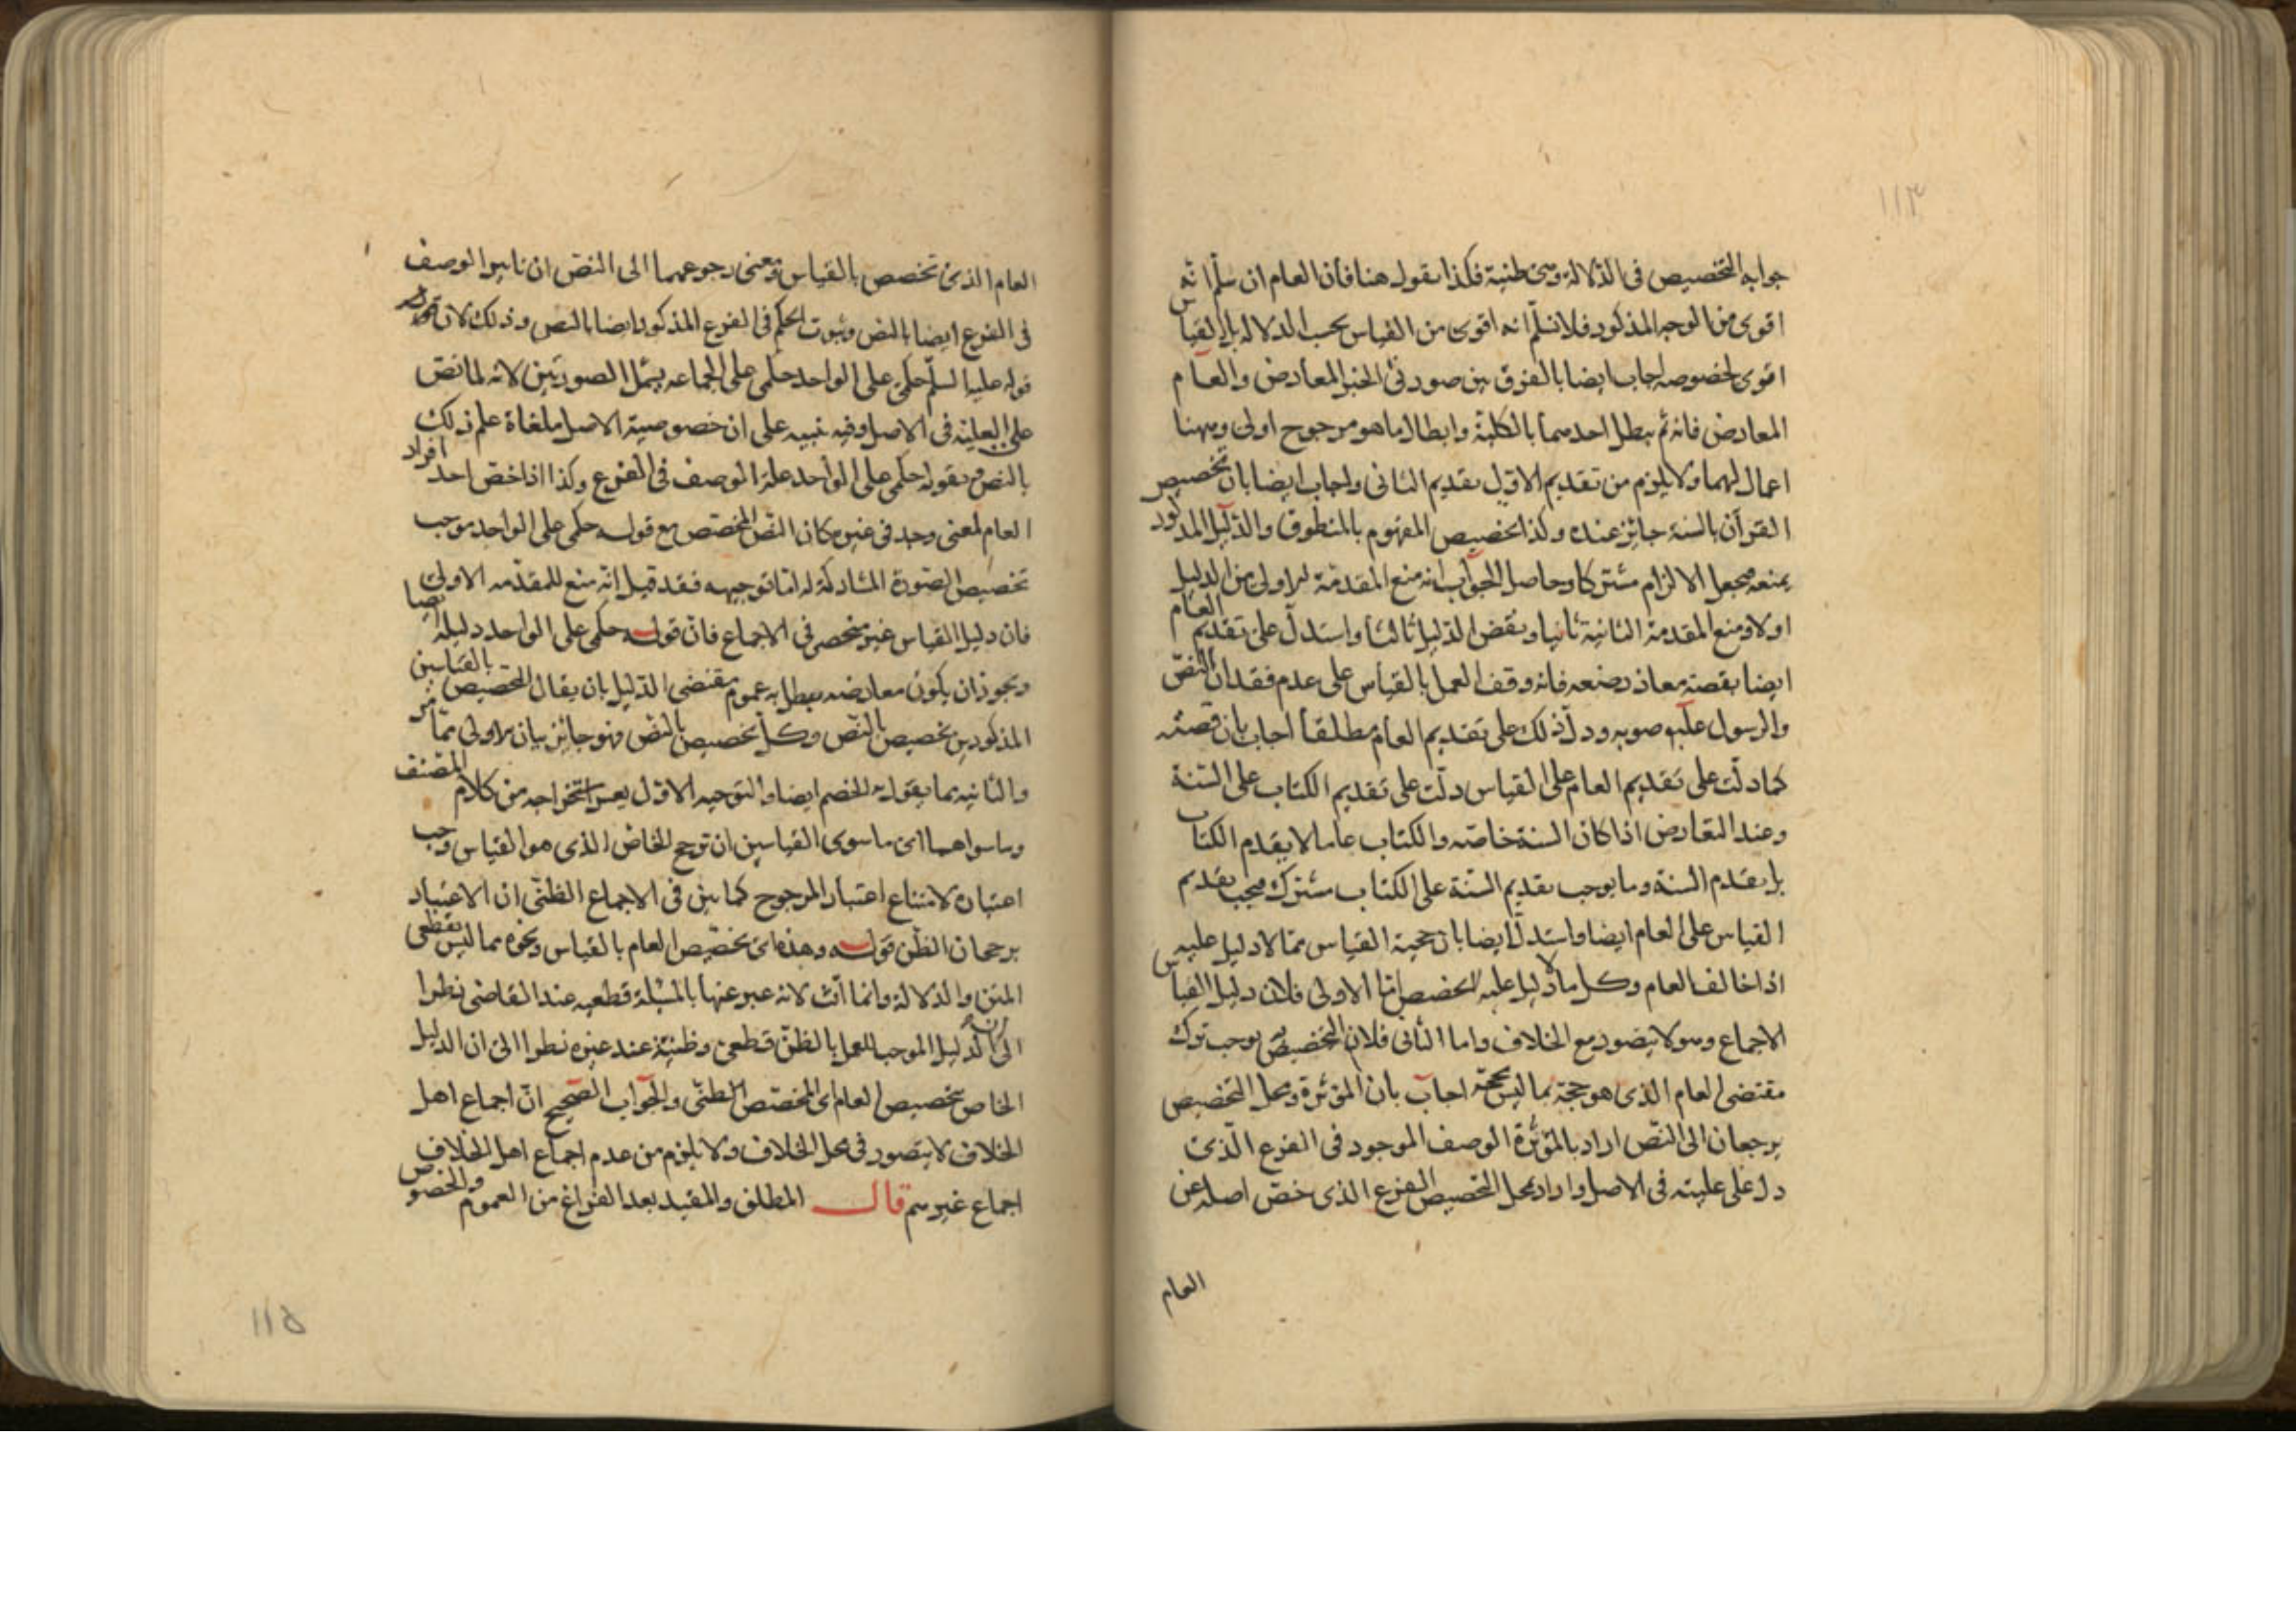 ١١٣
جوابه التخصيص فى الدلالة وهى ظنية فكذا نقول هنا فان العام ان سلم انه
اقوى من الوجه المذكور فلا نسلم انه اقوى من القياس بحسب الدلالة بل القياس
اقوى لخصوصه اجاب ايضا بالفرق بين صورتى الخبر المعارض والعام
المعارض فانه ثم يبطل احدهما بالكلية وابطال ما هو مرجوح اولى وههنا
اعمال لهما ولا يلزم من تقديم الاول تقديم الثانى واجاب ايضا بان تخصيص
القرآن بالسنة جائز عنده وكذا تخصيص المفهوم بالمنطوق والدليل المذكور
يمنعه فيجعل الالزام مشتركا وحاصل الجواب انه منع المقدمة الاولى من الدليل
اولا ومنع المقدمة الثانية ثانيا ونقض الدليل ثالثا واستدل على تقديم العام
ايضا بقصة معاذ رضى عنه فانه وقف العمل بالقياس على عدم فقدان النص
والرسول عليه صوبه ودل ذلك على تقديم العام مطلقا اجاب بان قصته
كما دلت على تقديم العام على القياس دلت على تقديم الكتاب على السنة
وعند التعارض اذا كان السنة خاصة والكتاب عاما لا يقدم الكتاب
بل تقدم السنة وما يوجب تقديم السنة على الكتاب مشترك فيجب تقديم
القياس على العام ايضا واستدل ايضا بان حجية القياس مما لا دليل عليه
اذا خالف العام وكل ما لا دليل عليه لا يخصص اما الاولى فلان دليل القياس
الاجماع وهو لا يتصور مع الخلاف واما الثانى فلان التخصيص يوجب ترك
مقتضى العام الذى هو حجة بما ليس بحجة اجاب بان المؤثرة ومحل التخصيص
يرجعان الى النص اراد بالمؤثرة الوصف الموجود فى الفرع الذى
دل على عليته فى الاصل واراد بمحل التخصيص الفرع الذى خص اصله عن
العام
العام الذى تخصص بالقياس ومعنى رجوعهما الى النص ان تاثير الوصف
فى الفرع ايضا بالنص وثبوت الحكم فى الفرع المذكور ايضا بالنص وذلك لان
قوله عليه السلم حكمى على الواحد حكمى على الجماعه يشمل الصورتين لانه لما نص
على العلية فى الاصل وفيه تنبيه على ان خصوصية الاصل ملغاة علم ذلك
بالنص وبقوله حكمى على الواحد علة الوصف فى الفرع وكذا اذا خص احد افراد
العام لمعنى وجد فى غيره كان النص المخصص مع قوله حكمى على الواحد موجب
تخصيص الصورة المشاركة له اما توجيهه فقد قيل انه منع للمقدمه الاولى
فان دليل القياس غير منحصر فى الاجماع فان قوله حكمى على الواحد دليله ايضا
ويجوز ان يكون معارضه يبطل به عموم مقتضى الدليل بان يقال التخصيص بالقياسين
المذكورين تخصيص بالنص وكل تخصيص بالنص فهو جائز بيان الاولى مما مر
والثانية بما يقول به الخصم ايضا والتوجيه الاول يعسر استخراجه من كلام المصنف
وما سواهما اى ما سوى القياسين ان ترجح الخاص الذى هو القياس وجب
اعتباره لامتناع اعتبار المرجوح كما بين فى الاجماع الظنى ان الاعتبار
برجحان الظن قوله وهذه اى تخصيص العام بالقياس ونحوه مما ليس بقطعى
المتن والدلالة وانما انث لانه عبر عنها بالمسئلة قطعيه عند القاضى نظرا
الى ان الدليل الموجب للعمل بالظن قطعى وظنية عند غيره نظرا الى ان الدليل
الخاص بتخصيص العام اى المخصص الظنى والجواب الصحيح ان اجماع اهل
الخلاف لا يتصور فى محل الخلاف ولا يلزم من عدم اجماع اهل الخلاف
اجماع غيرهم قال المطلق والمقيد بعد الفراغ من العموم والخصوص
١١٥